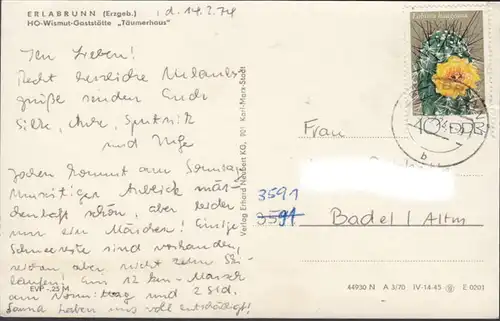 ERLABRUNN (Erzgeb.)
HO-Wismut-Gaststätte „Täumerhaus"
d. 14.2.74
Ihr Lieben!
Recht herzliche Urlaubs-
grüße senden Euch
Silke, Anke, Sputnik
und Helge
Jochen kommt am Sonntag.
Anblick mär-
chenhaft schön, aber leider
nur ein Märchen! Einige
Schneereste sind vorhanden,
reichen aber nicht zum Ski-
laufen! Ein 12 km-Marsch
am Vormittag und 2 Std.
Sauna haben uns voll entschädigt!
EVP -,25 M
Verlag Erhard Neubert KG, 901 Karl-Marx-Stadt
10 DDR
b
Frau
3591
3591
Badel / Altm
44930 N A 3/70 IV-14-45 E 0201